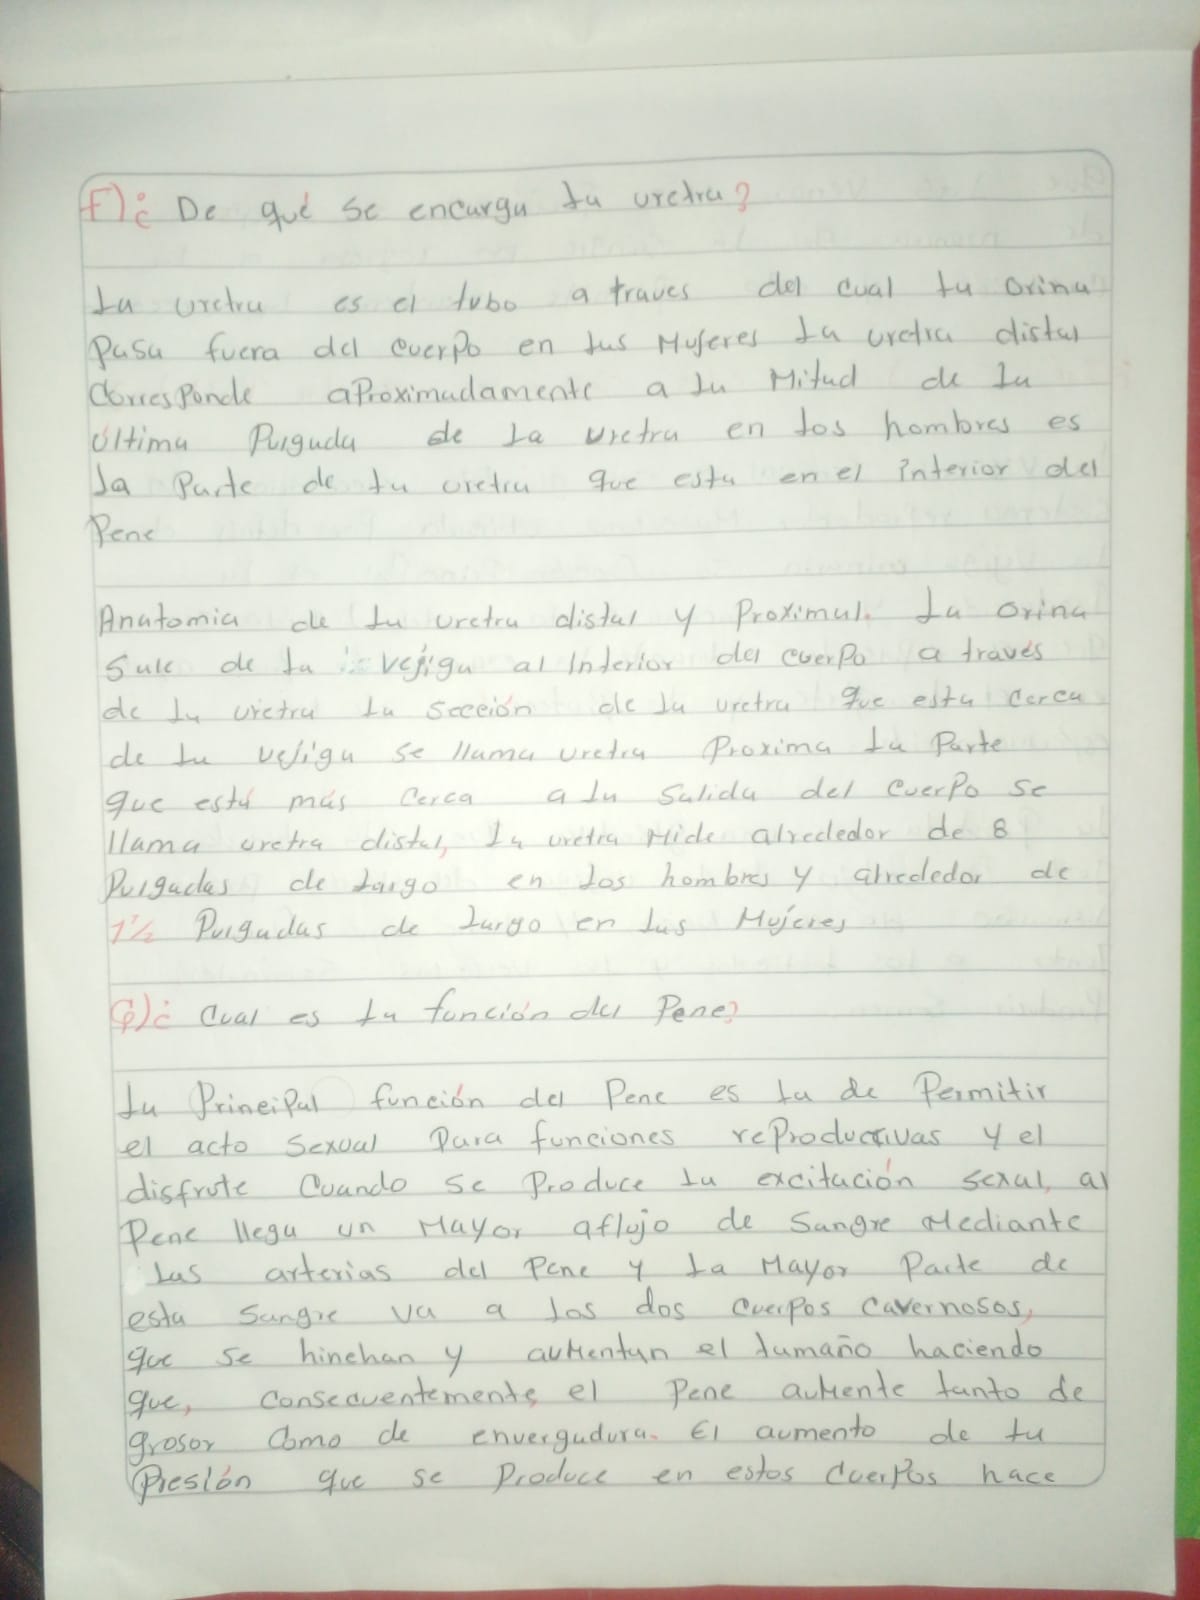 F)¿ De qué se encarga la uretra?
La uretra es el tubo a traves del cual la orina
Pasa fuera del cuerpo en las Mujeres La uretra distal
Corresponde aProximadamente a la Mitad de la
última Purgada de la uretra en los hombres es
la Parte de la uretra que esta en el interior del
Pene
Anatomia de la uretra distal y Proximal. La orina
Sale de la vejiga al Interior del cuerpo a través
de la uretra la sección de la uretra que esta cerca
de la vejiga se llama uretra Proxima la Parte
que está más cerca a la Salida del cuerPo se
llama uretra distal, la uretra Mide alrededor de 8
Purgadas de largo en los hombres y alrededor de
1½ Purgadas de largo en las Mujeres
G)¿ Cual es la función del Pene?
La PrinciPal función del Pene es la de Permitir
el acto sexual Para funciones reProductivas y el
disfrute Cuando se Produce la excitación sexual, al
Pene llega un Mayor aflujo de Sangre Mediante
las arterias del Pene y la Mayor Parte de
esta Sangre va a los dos cuerpos cavernosos,
que se hinchan y auMentan el tamaño haciendo
que, consecuentemente, el Pene auMente tanto de
grosor Como de envergadura. El aumento de la
Presión que se Produce en estos CuerPos hace